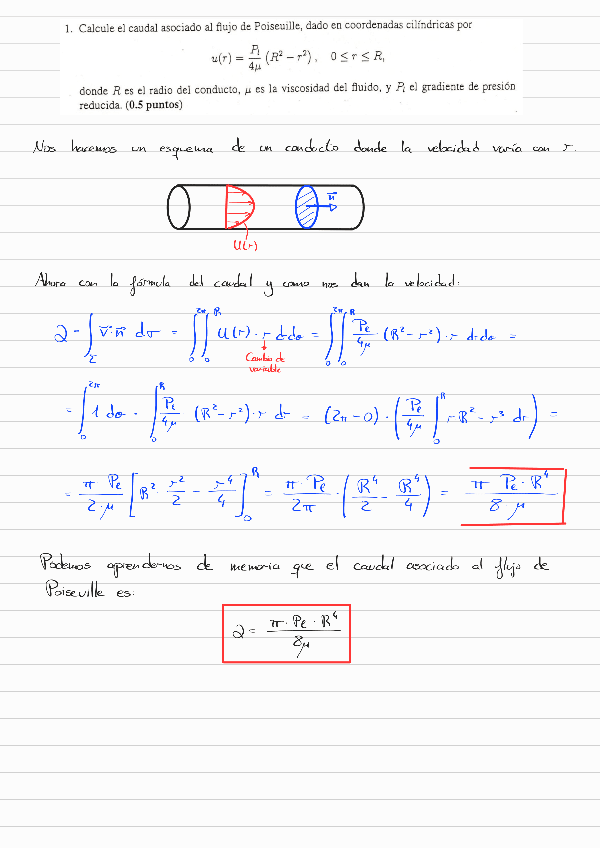 1. Calcule el caudal asociado al flujo de Poiseuille, dado en coordenadas cilíndricas por
u(r) = P_l/4μ (R² − r²), 0 ≤ r ≤ R,
donde R es el radio del conducto, μ es la viscosidad del fluido, y P_l el gradiente de presión
reducida. (0.5 puntos)
Nos hacemos un esquema de un conducto donde la velocidad varía con r.
n⃗
U(r)
Ahora con la fórmula del caudal y como nos dan la velocidad:
Q = ∫_Σ v⃗·n⃗ dσ = ∫₀^2π ∫₀^R U(r)·r dr dθ = ∫₀^2π ∫₀^R Pe/4μ · (R² − r²)·r dr dθ =
Cambio de
variable
= ∫₀^2π 1 dθ · ∫₀^R Pe/4μ (R² − r²)·r dr = (2π − 0)·(Pe/4μ ∫₀^R rR² − r³ dr) =
= π Pe/2·μ [R² · r²/2 − r⁴/4]₀^R = π Pe/2π · (R⁴/2 − R⁴/4) = π Pe·R⁴/8 μ
Podemos aprendernos de memoria que el caudal asociado al flujo de
Poiseville es:
Q = π·Pe·R⁴/8μ